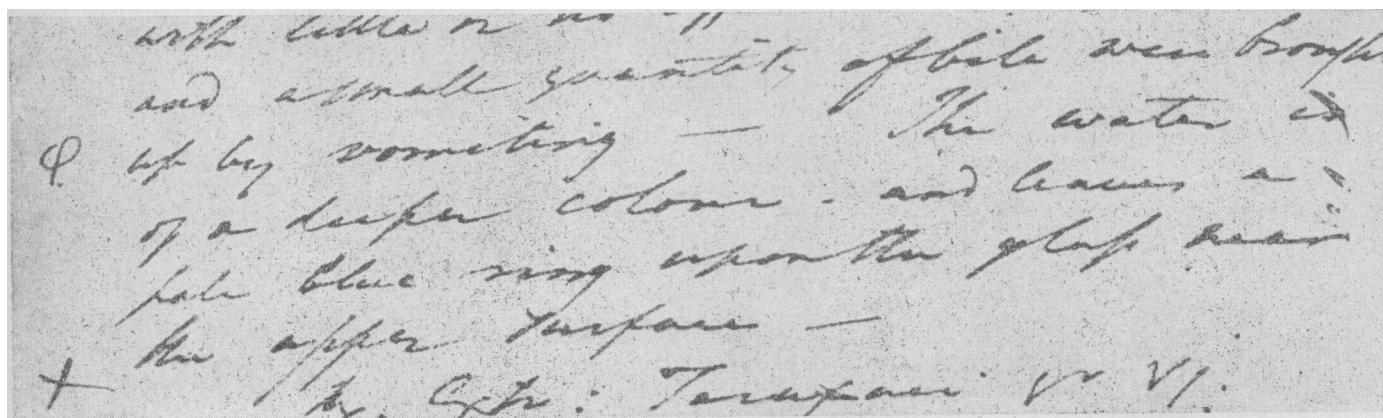 with little or no
and a small quantity of bile were brought
up by vomiting — The water is
of a deeper colour - and leaves a
pale blue ring upon the glass near
the upper surface —
Extr: Taraxaci gr vj.